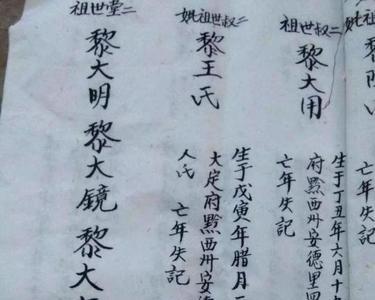 二叔世祖
黎大用
生于丁丑年六月十
府黔西州安德里四
亡年失記
二叔世祖妣
黎王氏
生于戊寅年腊月
大定府黔西州安德
人氏 亡年失記
二堂世祖
黎大明黎大鏡黎大